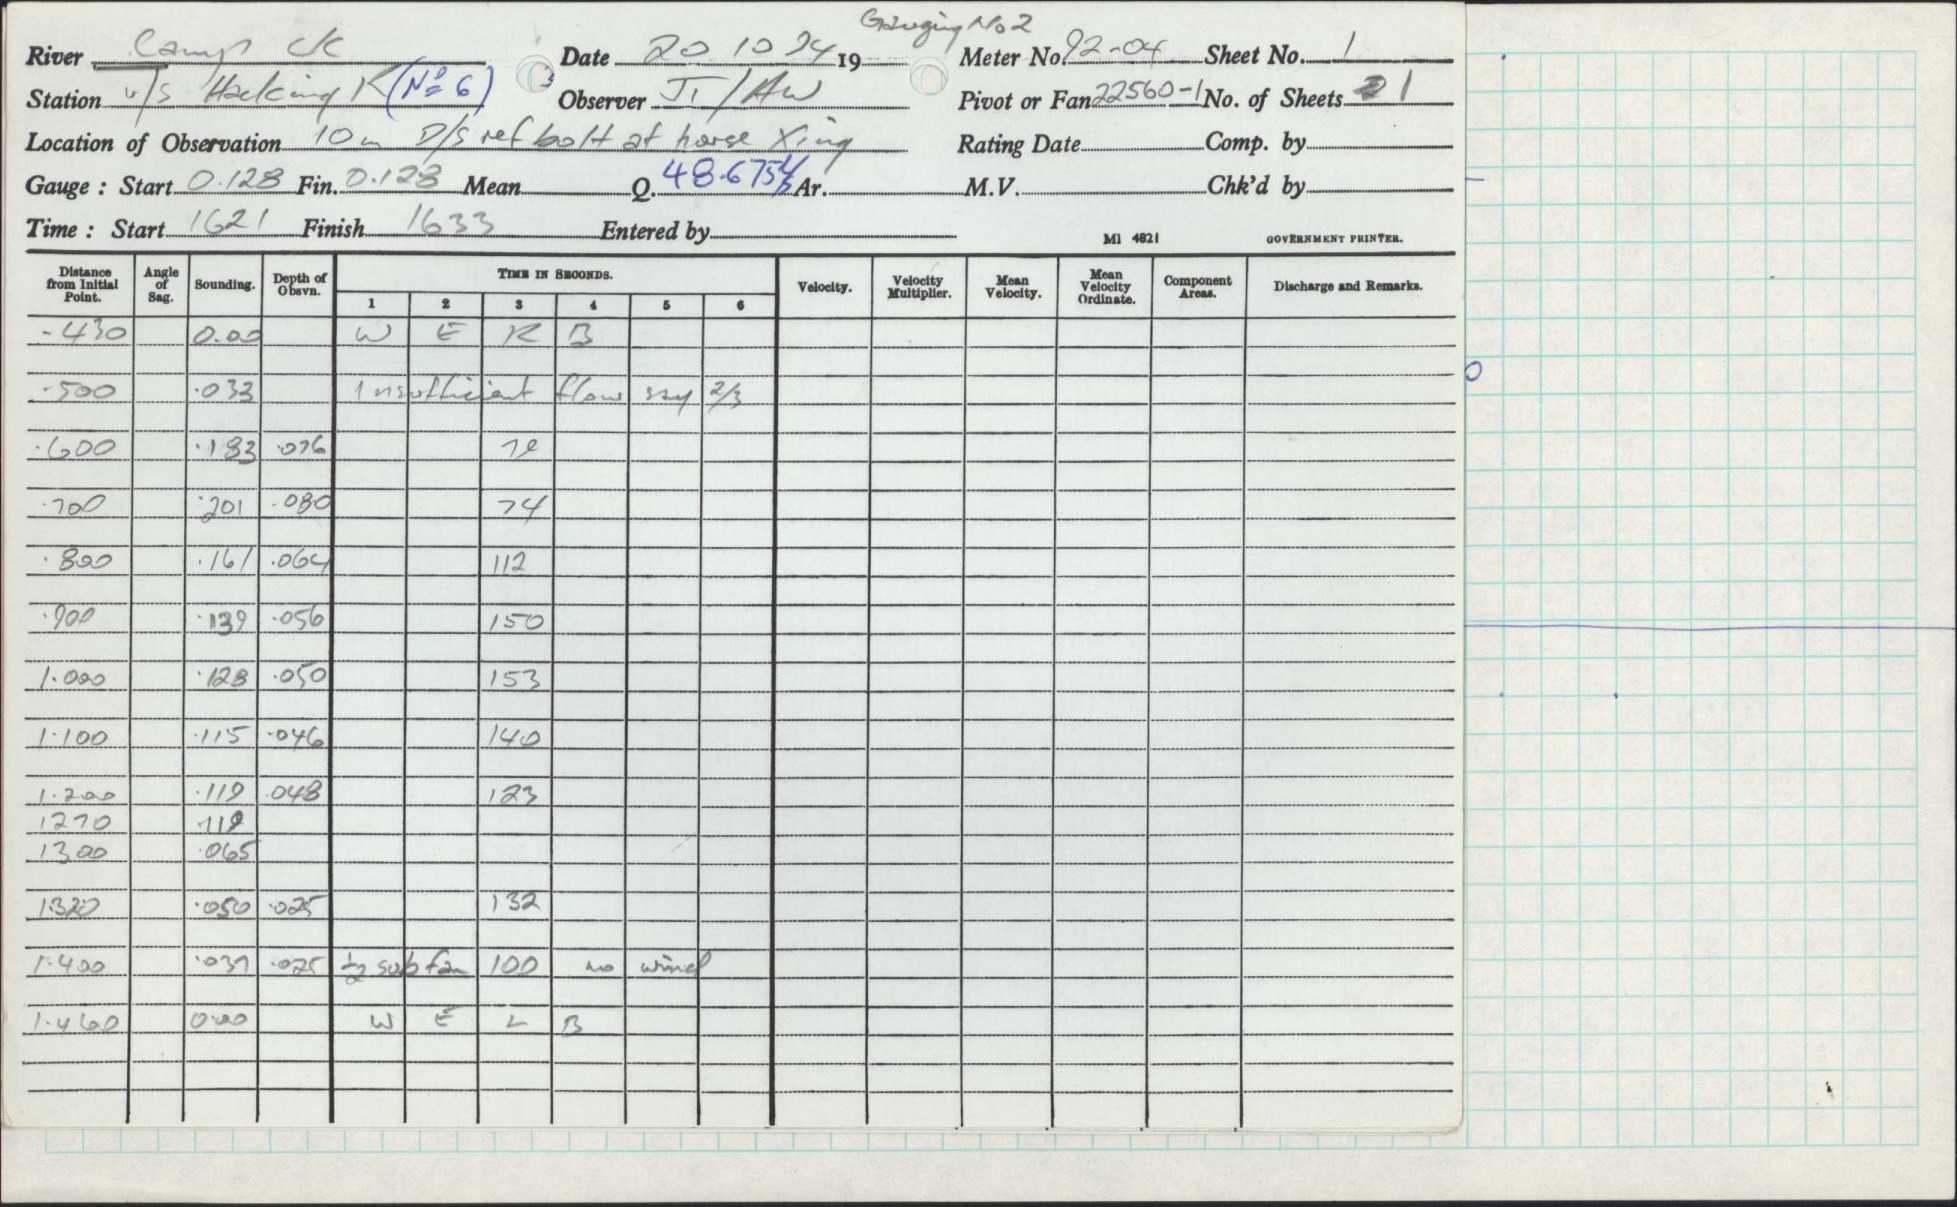 Gauging No 2
River Camp Ck Date 20 10 94 19 Meter No. 92-04 Sheet No. 1
Station u/s Hacking R (No 6) Observer JT/AW Pivot or Fan 22560-1 No. of Sheets 1
Location of Observation 10m D/S ref bolt at horse Xing Rating Date Comp. by
Gauge: Start 0.128 Fin. 0.128 Mean Q. 48.675 l/s Ar. M.V. Chk'd by
Time: Start 1621 Finish 1633 Entered by
MI 4821 GOVERNMENT PRINTER.
Distance from Initial Point. Angle of Sag. Sounding. Depth of Obsvn. TIME IN SECONDS. Velocity. Velocity Multiplier. Mean Velocity. Mean Velocity Ordinate. Component Areas. Discharge and Remarks.
1 2 3 4 5 6
.430 0.00 W E R B
.500 .033 Insufficient flow say 2/3
.600 .183 .076
.700 .201 .080 74
.800 .161 .064 112
.900 .139 .056 150
1.000 .128 .050 153
1.100 .115 .046 140
1.200 .119 .048 123
1270 .119
1300 .065
1.320 .050 .025 132
1.400 .037 .025 ½ sub fan 100 no wind
1.460 0.00 W E L B